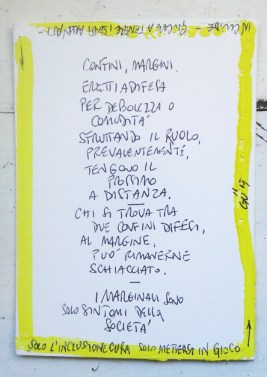 CONFINI, MARGINI.
ERETTI A DIFESA
PER DEBOLEZZA O
COMODITA'
SFRUTTANDO IL RUOLO,
PREVALENTEMENTE,
TENGONO IL
PROSSIMO
A DISTANZA.
CHI SI TROVA TRA
DUE CONFINI DIFESI,
AL MARGINE,
PUO' RIMANERNE
SCHIACCIATO.
I MARGINALI SONO
SOLO SINTOMI DELLA
SOCIETA'
SOLO L'INCLUSIONE CURA SOLO METTERSI IN GIOCO